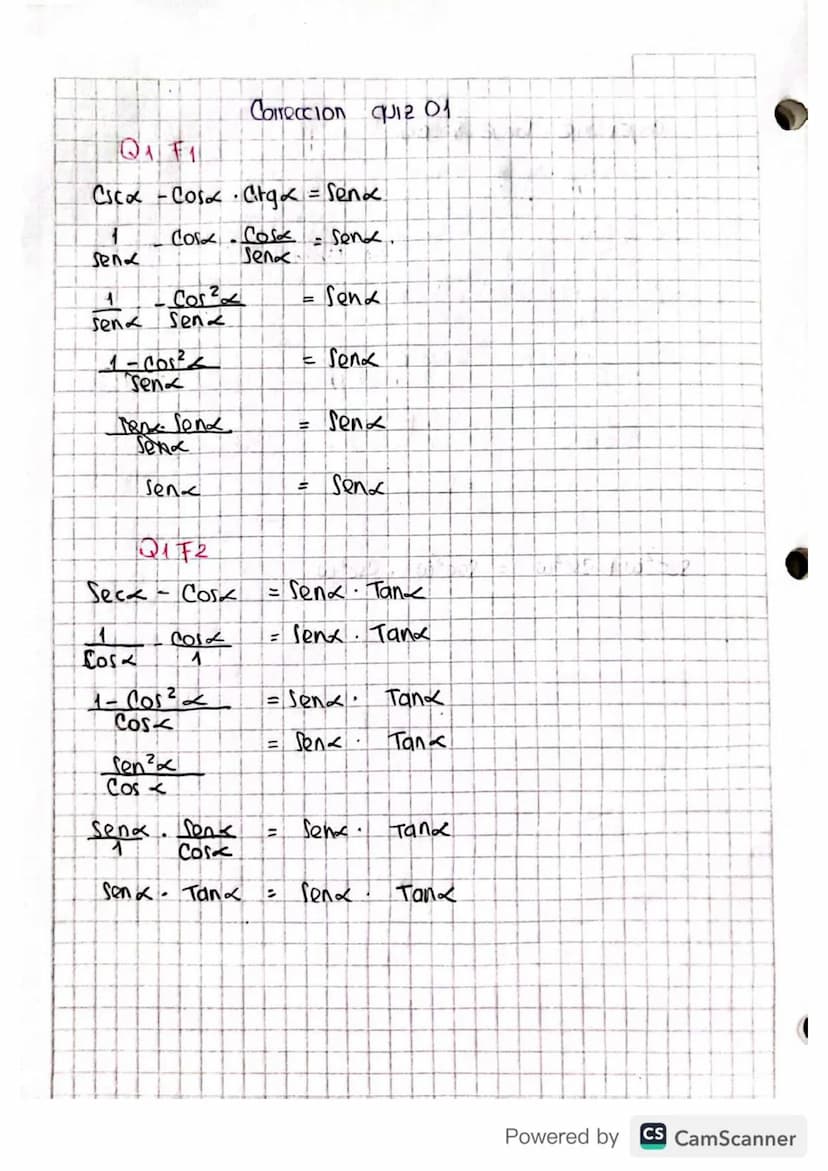 Correccion quiz 01
Q1 F1
Cscα - Cosα . Ctgα = Senα
1/Senα - Cosα . Cosα/Senα = Senα.
1/Senα - Cos²α/Senα = Senα
1-Cos²α/Senα = Senα
Senα. Senα/Senα = Senα
Senα = Senα
Q1 F2
Secα - Cosα = Senα . Tanα
1/Cosα - Cosα/1 = Senα . Tanα
1-Cos²α/Cosα = Senα . Tanα
Sen²α/Cosα = Senα . Tanα
Senα/1 . Senα/Cosα = Senα . Tanα
Senα . Tanα = Senα . Tanα
Powered by CS CamScanner